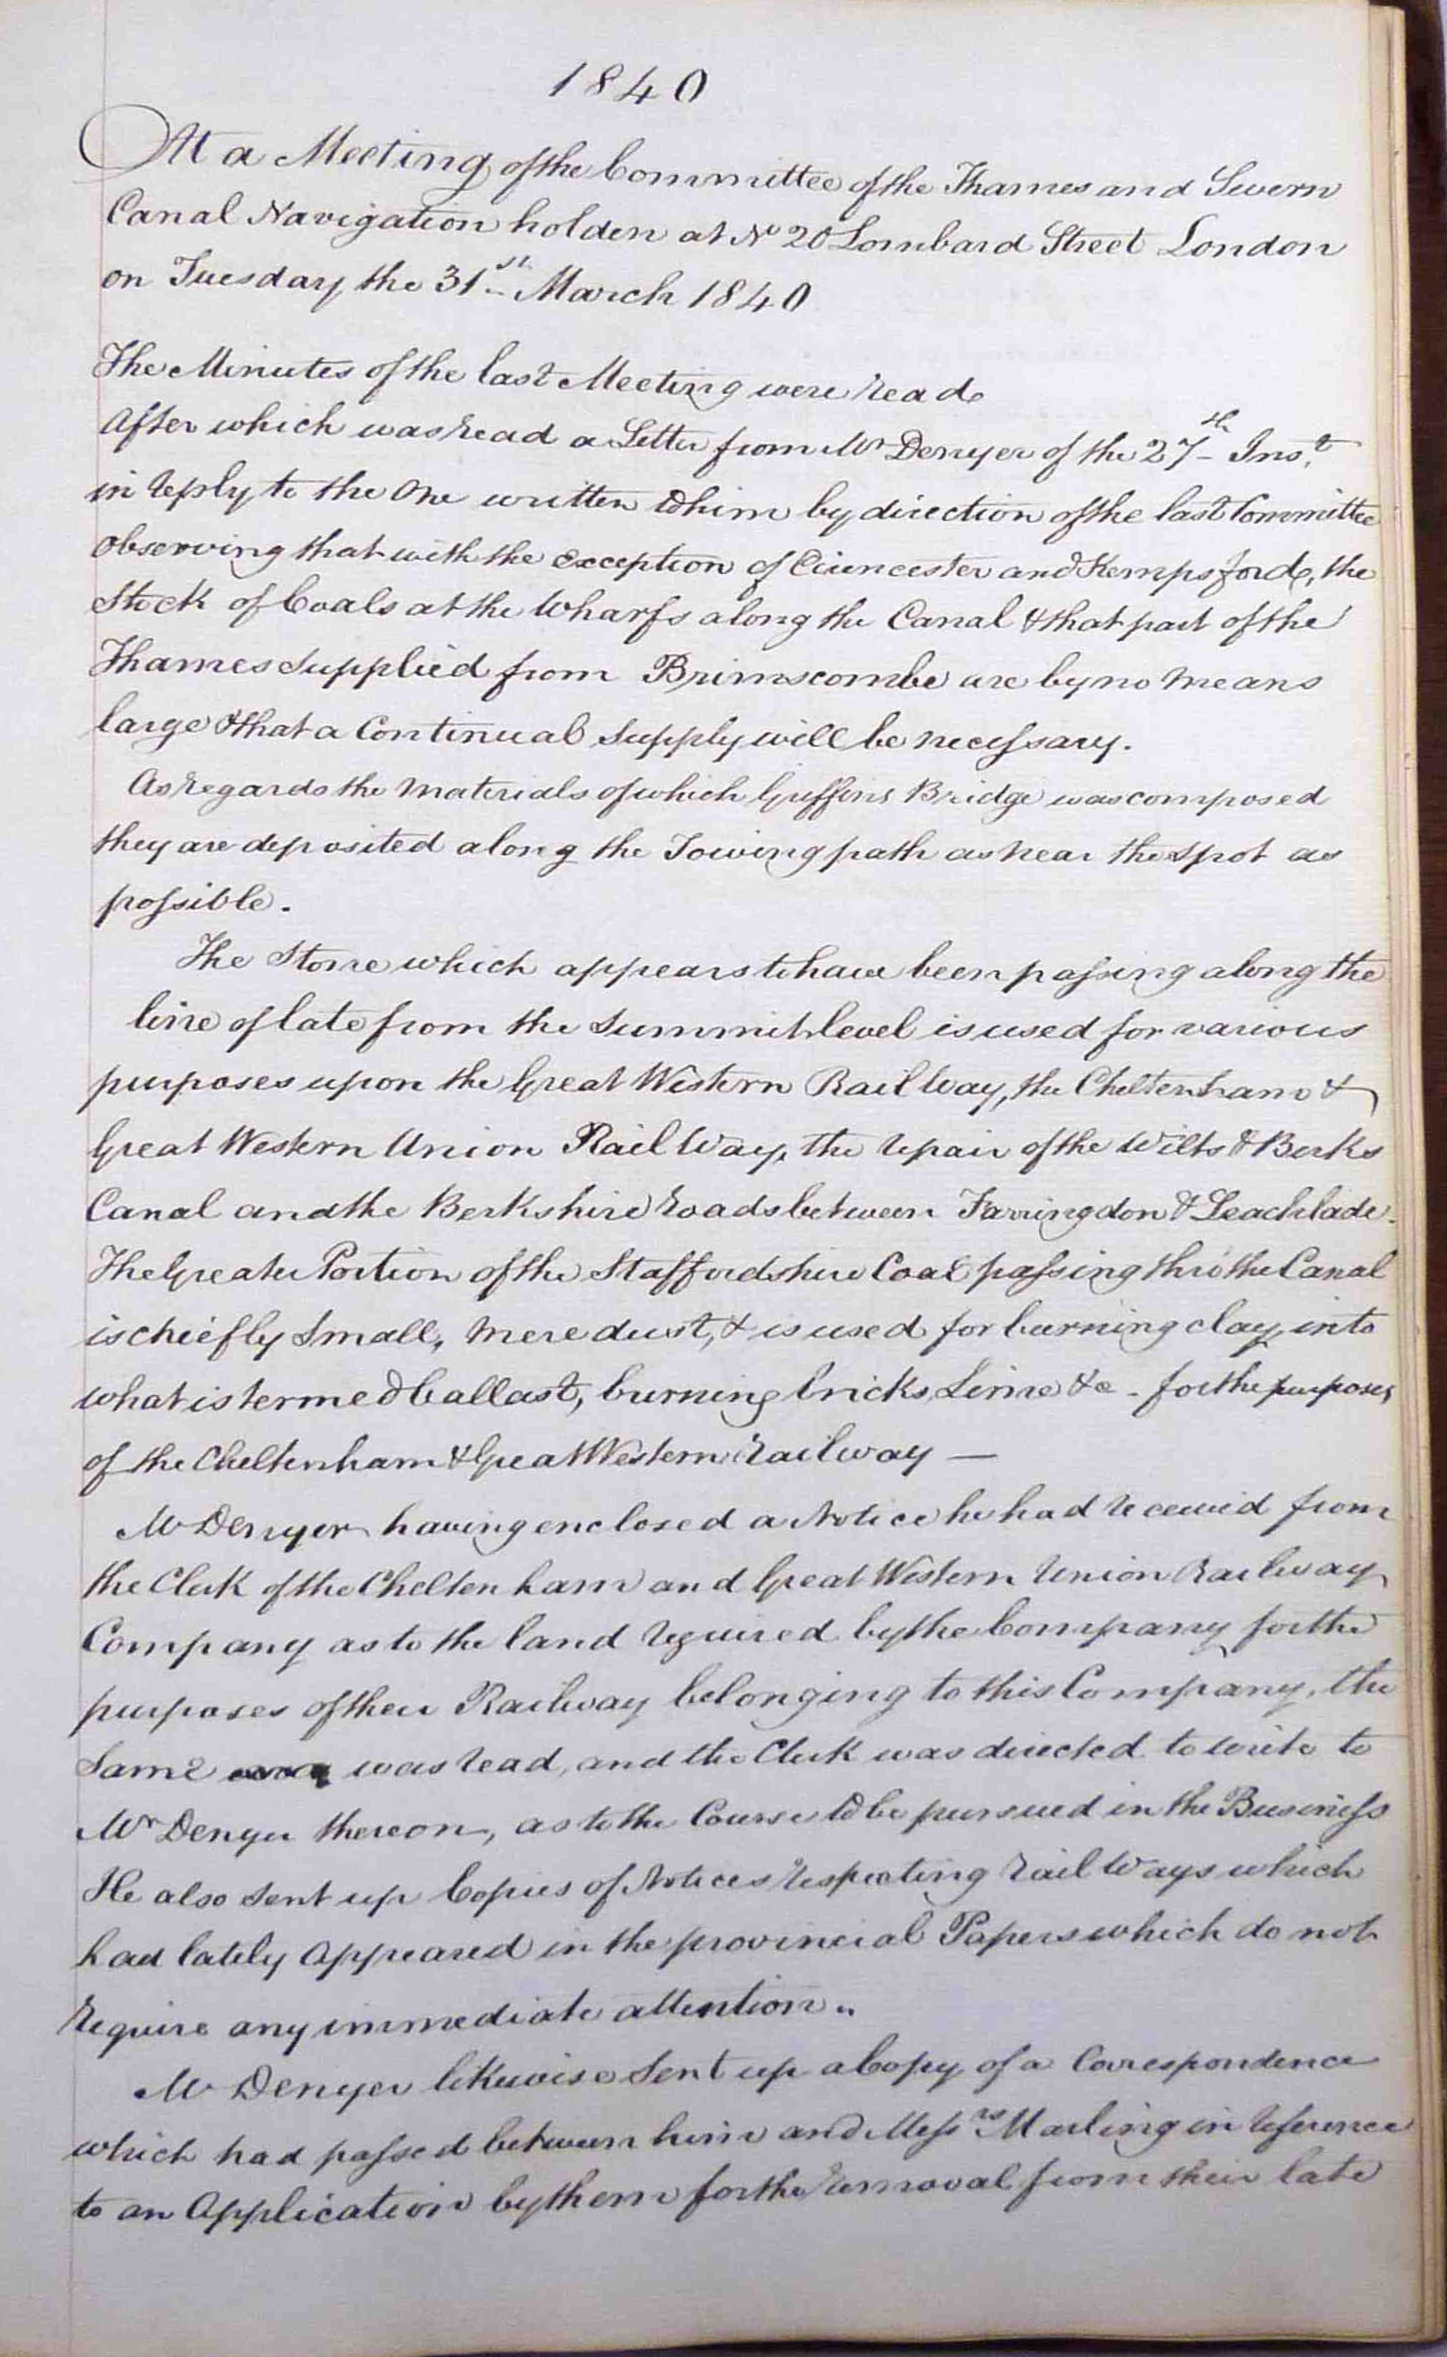 1840
At a Meeting of the Committee of the Thames and Severn
Canal Navigation holden at No 20 Lombard Street London
on Tuesday the 31st March 1840
The Minutes of the last Meeting were read
After which was read a Letter from Mr Denyer of the 27th Inst.
in reply to the one written to him by direction of the last Committee
observing that with the exception of Cirencester and Kempsford, the
Stock of Coals at the Wharfs along the Canal & that part of the
Thames supplied from Brimscombe are by no means
large & that a Continual supply will be necessary.
As regards the materials of which Griffins Bridge was composed
they are deposited along the Towing path as near the spot as
possible.
The Stone which appears to have been passing along the
line of late from the summit level is used for various
purposes upon the Great Western Rail Way, the Cheltenham &
Great Western Union Rail Way, the repair of the Wilts & Berks
Canal and the Berkshire roads between Farringdon & Leachlade.
The Greater Portion of the Staffordshire Coal passing thro' the Canal
is chiefly Small, mere dust, & is used for burning clay into
what is termed ballast, burning bricks, Lime &c - for the purposes
of the Cheltenham & Great Western Railway —
Mr Denyer having enclosed a Notice he had received from
the Clerk of the Cheltenham and Great Western Union Railway
Company as to the land required by the Company for the
purposes of their Railway belonging to this Company, the
Same was read, and the Clerk was directed to write to
Mr Denyer thereon, as to the Course to be pursued in the Business
He also sent up Copies of Notices respecting Rail Ways which
had lately appeared in the provincial Papers which do not
require any immediate attention..
Mr Denyer likewise Sent up a Copy of a Correspondence
which had passed between him and Messrs Marling in reference
to an Application by them for the removal from their late